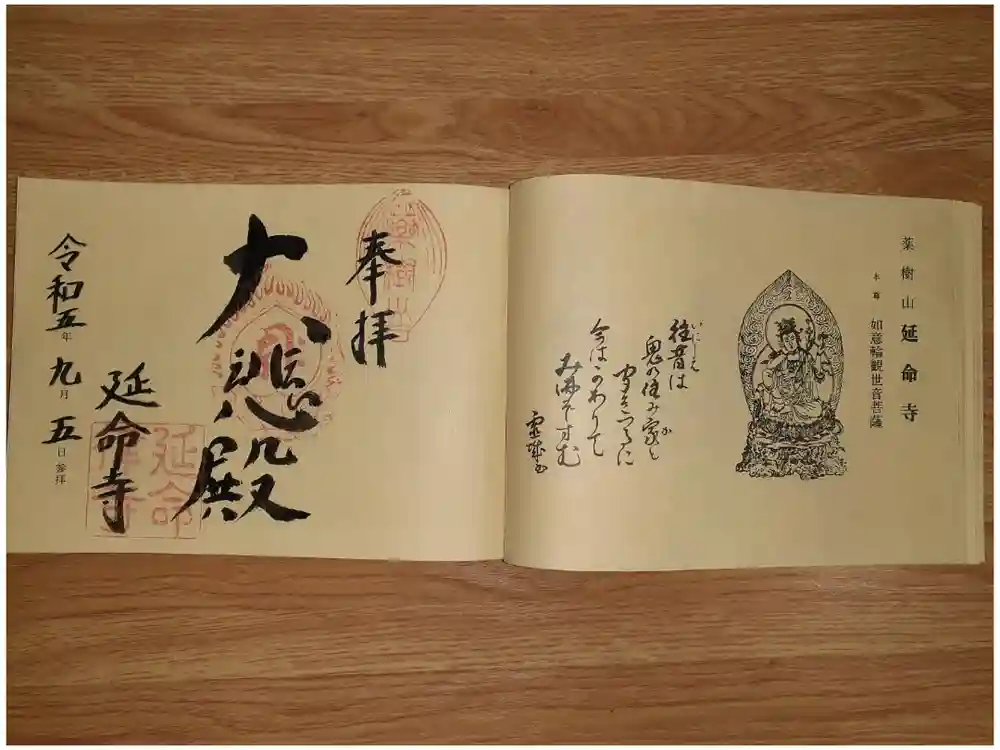 薬樹山 延命寺
本尊 如意輪観世音菩薩
いにしえ
往昔は
鬼の住み家と
今はかわりて
みほとけすむ
奉拝
薬樹山
大悲殿
延命寺
延命
令和五年九月五日 参拝